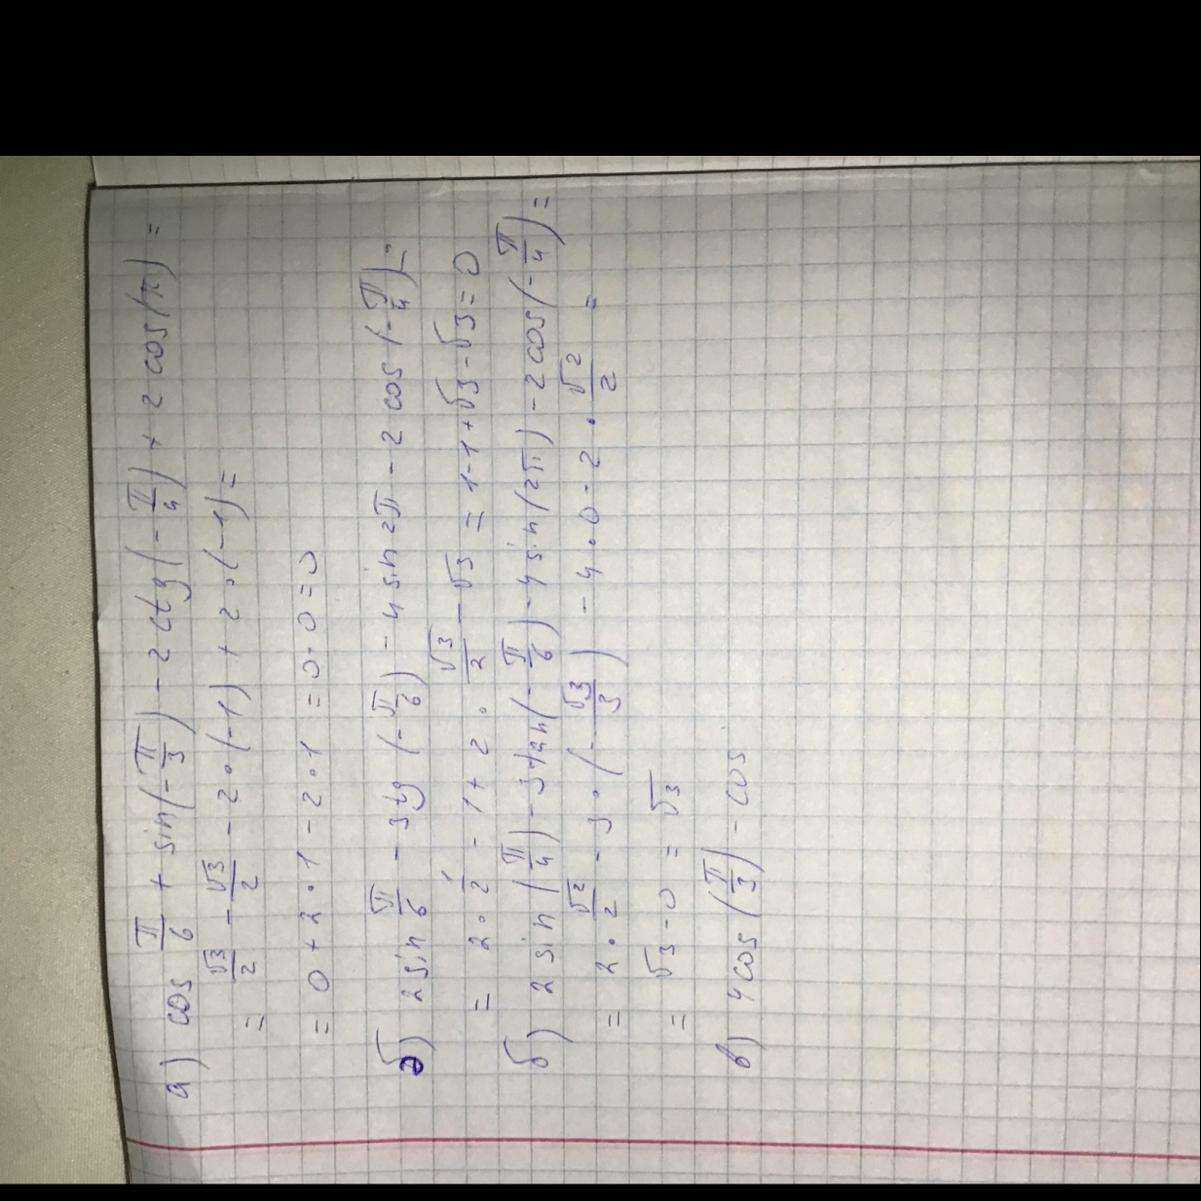 а) cos π/6 + sin(-π/3) - 2 ctg(-π/4) + 2 cos(π) =
= √3/2 - √3/2 - 2·(-1) + 2·(-1) =
= 0 + 2·1 - 2·1 = 0·0=0
б) 2sin π/6 - 3tg(-π/6) - 4 sin 2π - 2 cos(-π/4)=
= 2·1/2 - 1 + 2·√3/2 - √3 = 1-1+√3-√3=0
б) 2 sin(π/4) - 3tan(-π/6) - 4 sin(2π) - 2cos(-π/4)=
= 2·√2/2 - 3·(-√3/3) - 4·0-2·√2/2 =
= √3-0 = √3
в) 4cos(π/3) - cos